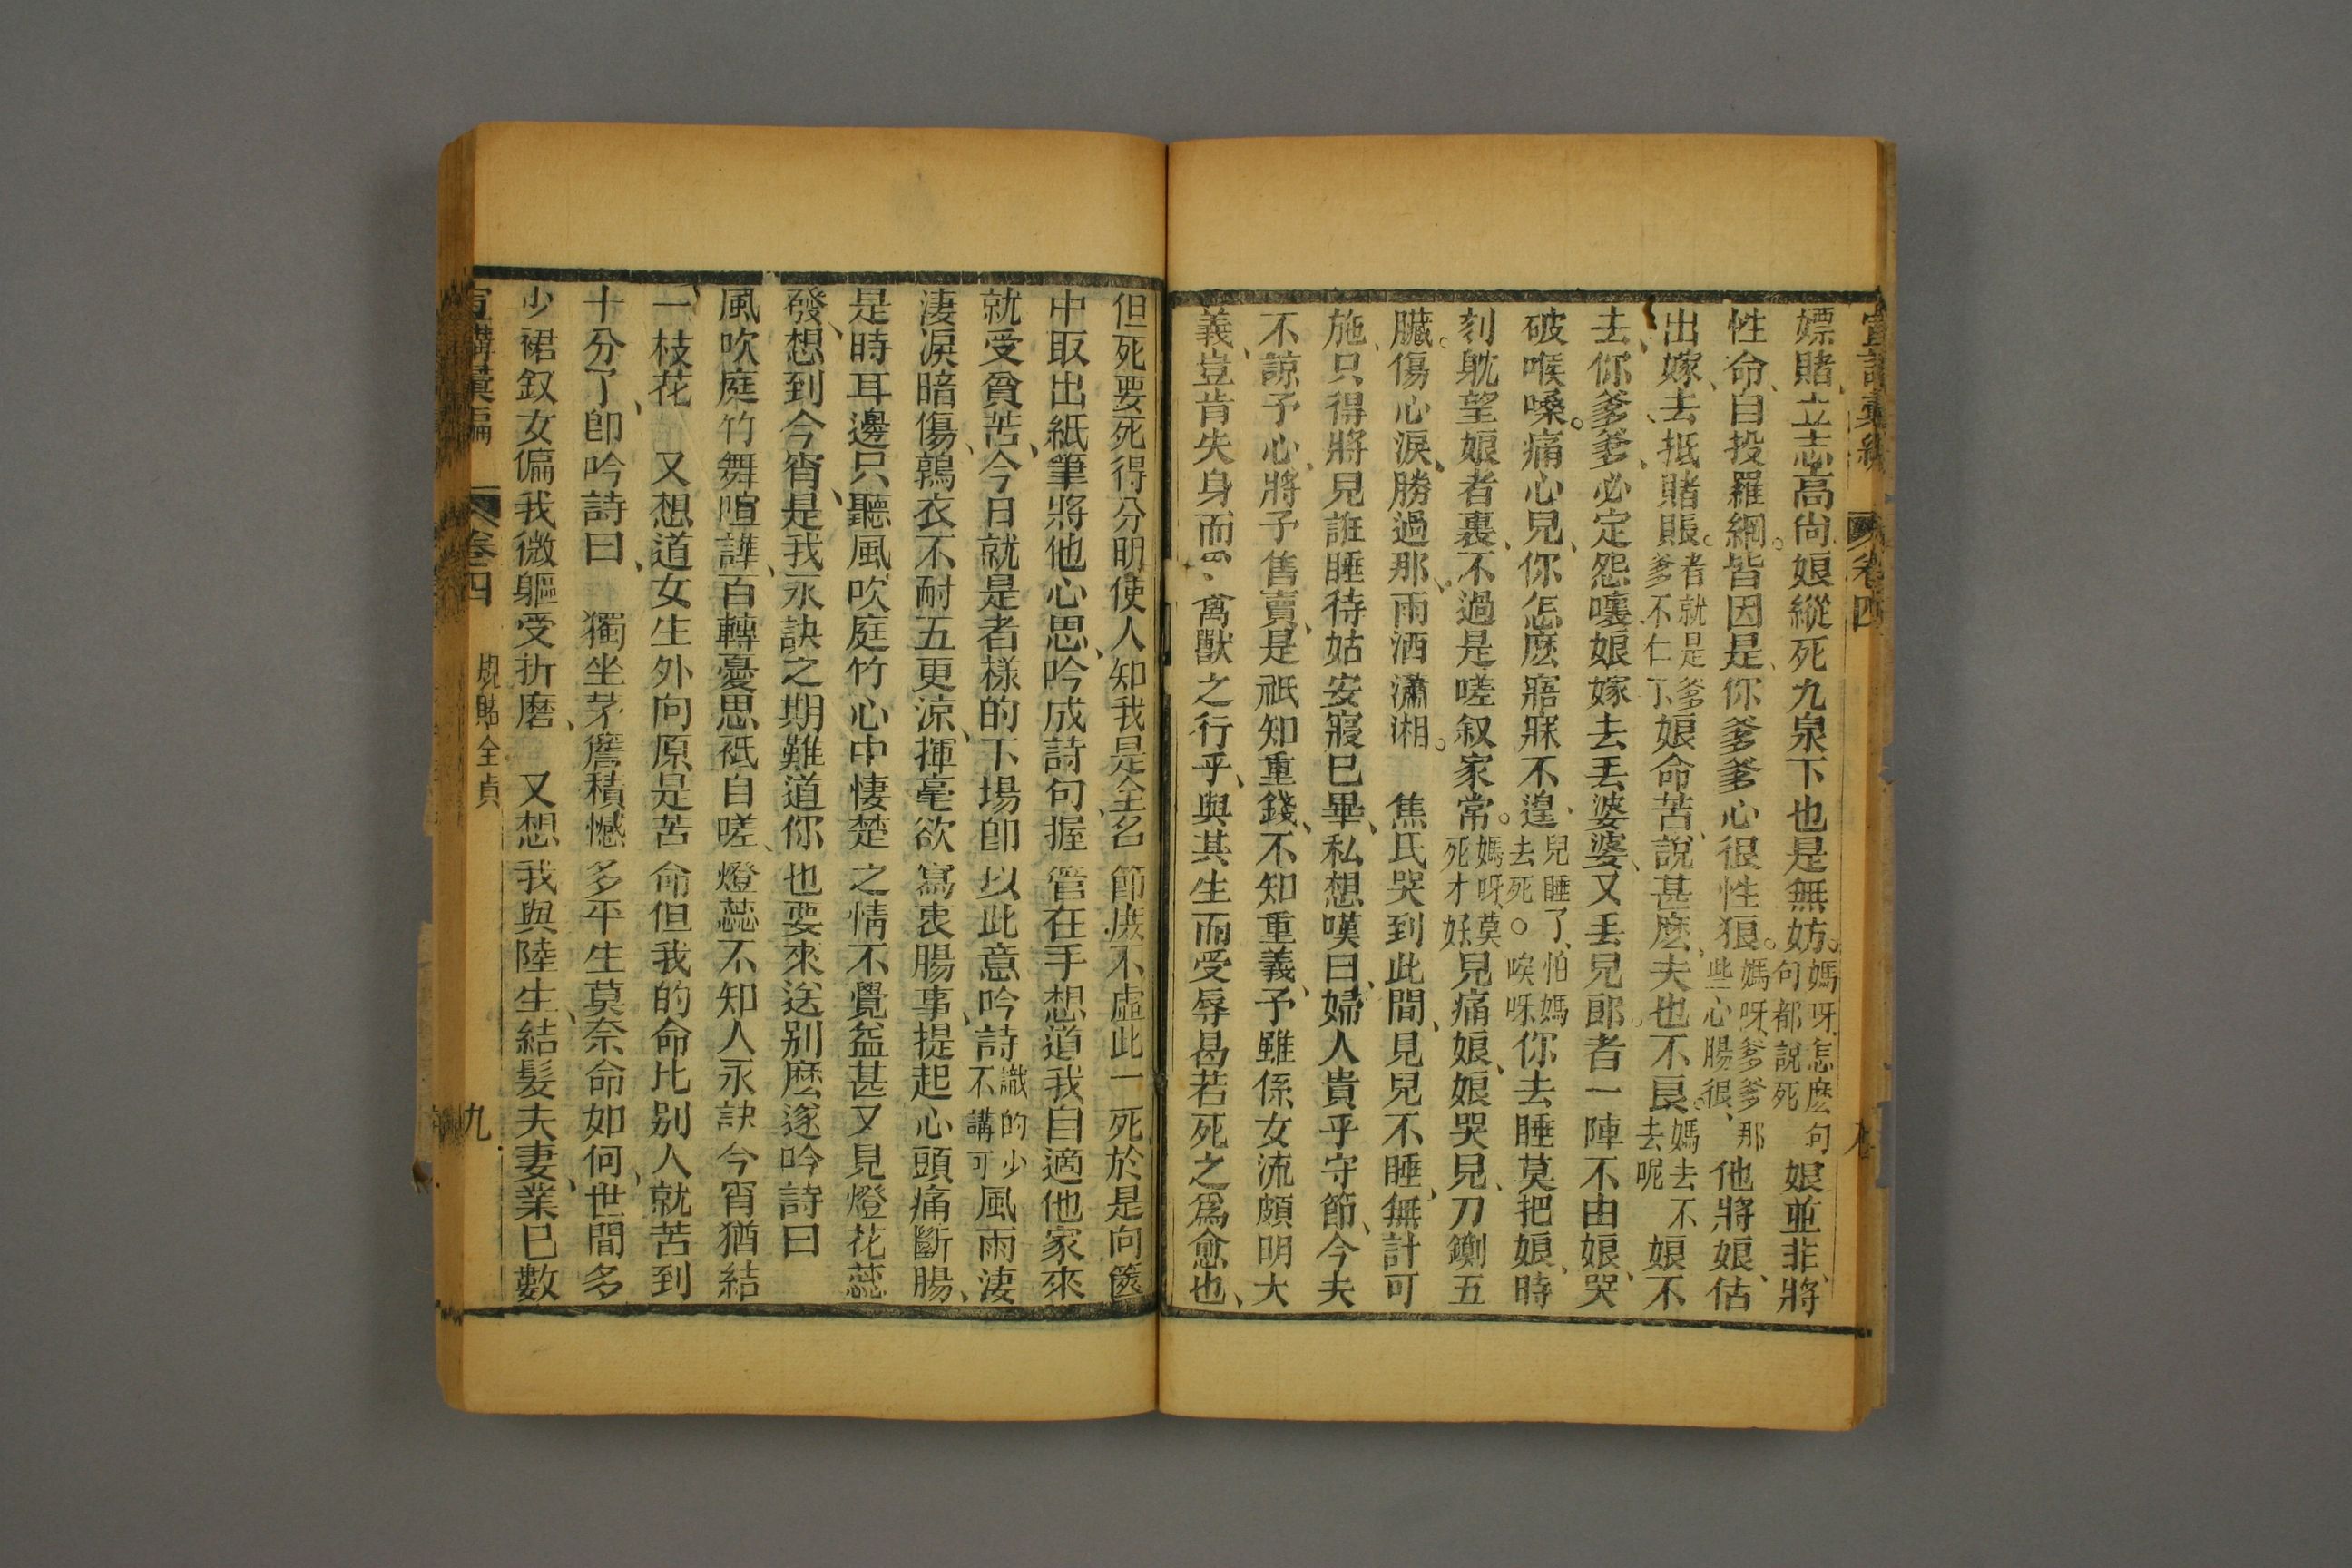 宣講彙編 卷四
嫖賭、立志高尚娘縱死九泉下也是無妨。媽呀、怎麽句句都說死娘並非、將
性命、自投羅網。皆因是、你爹爹心很性狠。媽呀、爹爹那些心腸很、他將娘、估
出嫁、去抵賭賬。者就是爹爹不仁了、娘命苦、說甚麽、夫也不良。媽去不去呢娘不
去、你爹爹、必定怨嚷娘嫁去丟婆婆、又丟兒郎。者一陣不由娘、哭
破喉嗓。痛心兒、你怎麽寤寐不遑、兒睡了、怕媽去死。唉呀你去睡莫把娘、時
刻躭望娘者裏、不過是嗟叙家常。媽呀、莫死才好兒痛娘、娘哭兒、刀鍘五
臟。傷心淚、勝過那、雨洒瀟湘。 焦氏哭到此間、見兒不睡、無計可
施、只得將兒誑睡待姑安寢已畢、私想嘆曰、婦人貴乎守節、今夫
不諒予心、將予售賣、是祇知重錢、不知重義、予雖係女流頗明大
義、豈肯失身而 、禽獸之行乎、與其生而受辱曷若死之爲愈也、
但死要死得分明使人知我是全名節庶不虛此一死於是向篋
中取出紙筆將他心思、吟成詩句、握管在手想道我自適他家來
就受貧苦、今日就是者樣的下塲卽以此意吟詩識的少不講可風雨淒
淒淚暗傷、鶉衣不耐五更凉、揮毫欲寫衷腸事、提起心頭痛斷腸、
是時耳邊只聽風吹庭竹心中悽楚之情不覺益甚又見燈花蕊
發、想到今宵、是我永訣之期難道你也要來送别麽遂吟詩曰
風吹庭竹舞喧譁、百轉憂思祇自嗟、燈蕊不知人永訣今宵猶結
一枝花 又想道女生外向原是苦命但我的命比别人就苦到
十分了、卽吟詩曰、 獨坐茅簷積憾多平生莫奈命如何、世間多
少裙釵女偏我微軀受折磨、 又想我與陸生、結髮夫妻、業已數
宣講彙編 卷四 規賭全貞 九